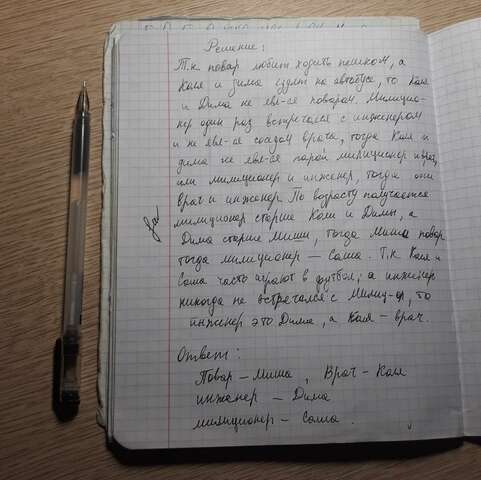 Решение:
Т.к повар любит ходить пешком, а
Коля и Дима ездят на автобусе, то Коля
и Дима не явл-ся поваром. Милицио-
нер один раз встречался с инженером
и не явл-ся соседом врача, тогда Коля и
Дима не явл-ся парой милиционер и врач,
или милиционер и инженер, тогда они
врач и инженер. По возрасту получается
милиционер старше Коли и Димы, а
Дима старше Миши, тогда Миша повар
тогда милиционер – Саша. Т.к Коля и
Саша часто играют в футбол, а инженер
никогда не встречался с милиц-ом, то
инженер это Дима, а Коля – врач.
Ответ:
Повар – Миша, Врач – Коля
инженер – Дима
милиционер – Саша.